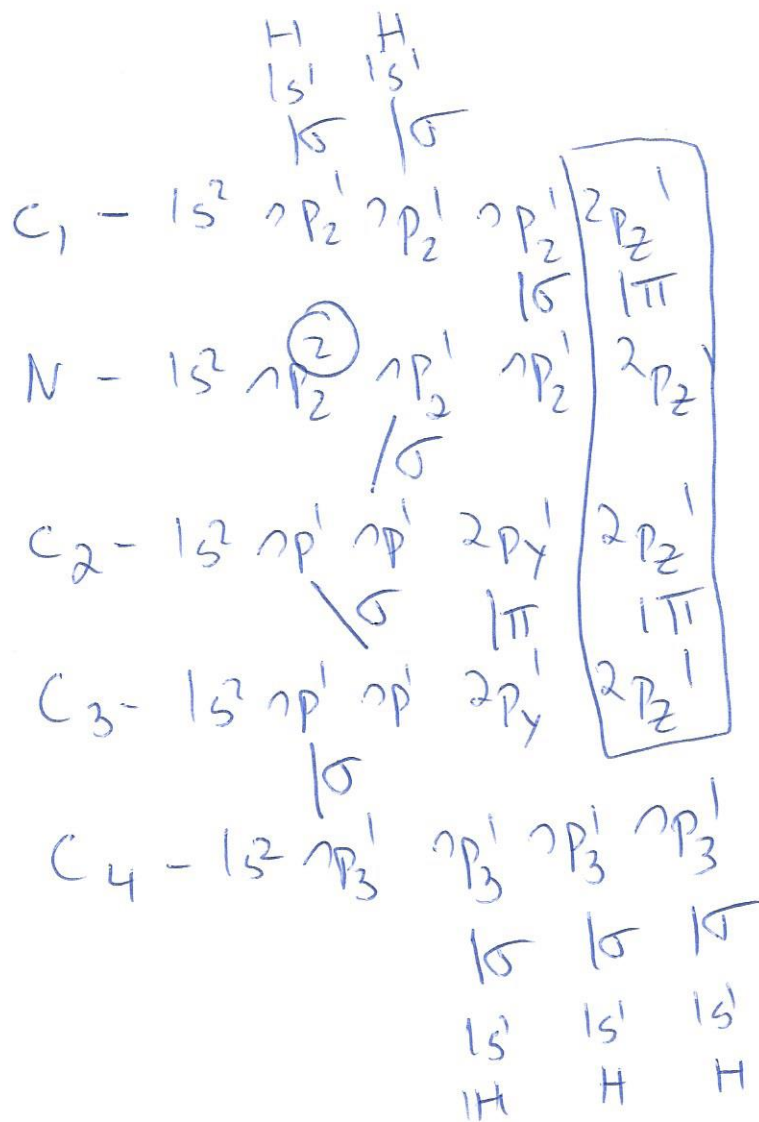 H H
1s¹ 1s¹
|σ |σ
C₁ - 1s² ∩p₂¹ ∩p₂¹ ∩p₂¹ 2p_z¹
|σ |π
N - 1s² ∩p₂² ∩p₂¹ ∩p₂¹ 2p_z¹
/σ
C₂ - 1s² ∩p¹ ∩p¹ 2p_y¹ 2p_z¹
\σ |π |π
C₃ - 1s² ∩p¹ ∩p¹ 2p_y¹ 2p_z¹
|σ
C₄ - 1s² ∩p₃¹ ∩p₃¹ ∩p₃¹ ∩p₃¹
|σ |σ |σ
1s¹ 1s¹ 1s¹
H H H